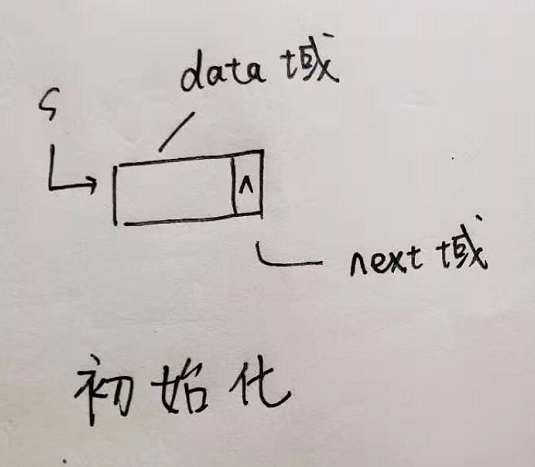 data 域
S
∧
next 域
初始化